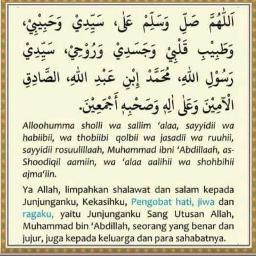 اَللّٰهُمَّ صَلِّ وَسَلِّمْ عَلٰى، سَيِّدِيْ وَحَبِيْبِيْ،
وَطَبِيْبِ قَلْبِيْ وَجَسَدِيْ وَرُوْحِيْ، سَيِّدِيْ
رَسُوْلِ اللهِ، مُحَمَّدْ اِبْنِ عَبْدِ اللهِ، الصَّادِقِ
الْاَمِيْنَ وَعَلٰى اٰلِهٖ وَصَحْبِهٖ أَجْمَعِيْنَ.
Alloohumma sholli wa sallim 'alaa, sayyidii wa
habiibii, wa thobiibi qolbii wa jasadii wa ruuhii,
sayyidii rosuulillaah, Muhammad ibni 'Abdillaah, as-
Shoodiqil aamiin, wa 'alaa aalihii wa shohbihii
ajma'iin.
Ya Allah, limpahkan shalawat dan salam kepada
Junjunganku, Kekasihku, Pengobat hati, jiwa dan
ragaku, yaitu Junjunganku Sang Utusan Allah,
Muhammad bin 'Abdillah, seorang yang benar dan
jujur, juga kepada keluarga dan para sahabatnya.